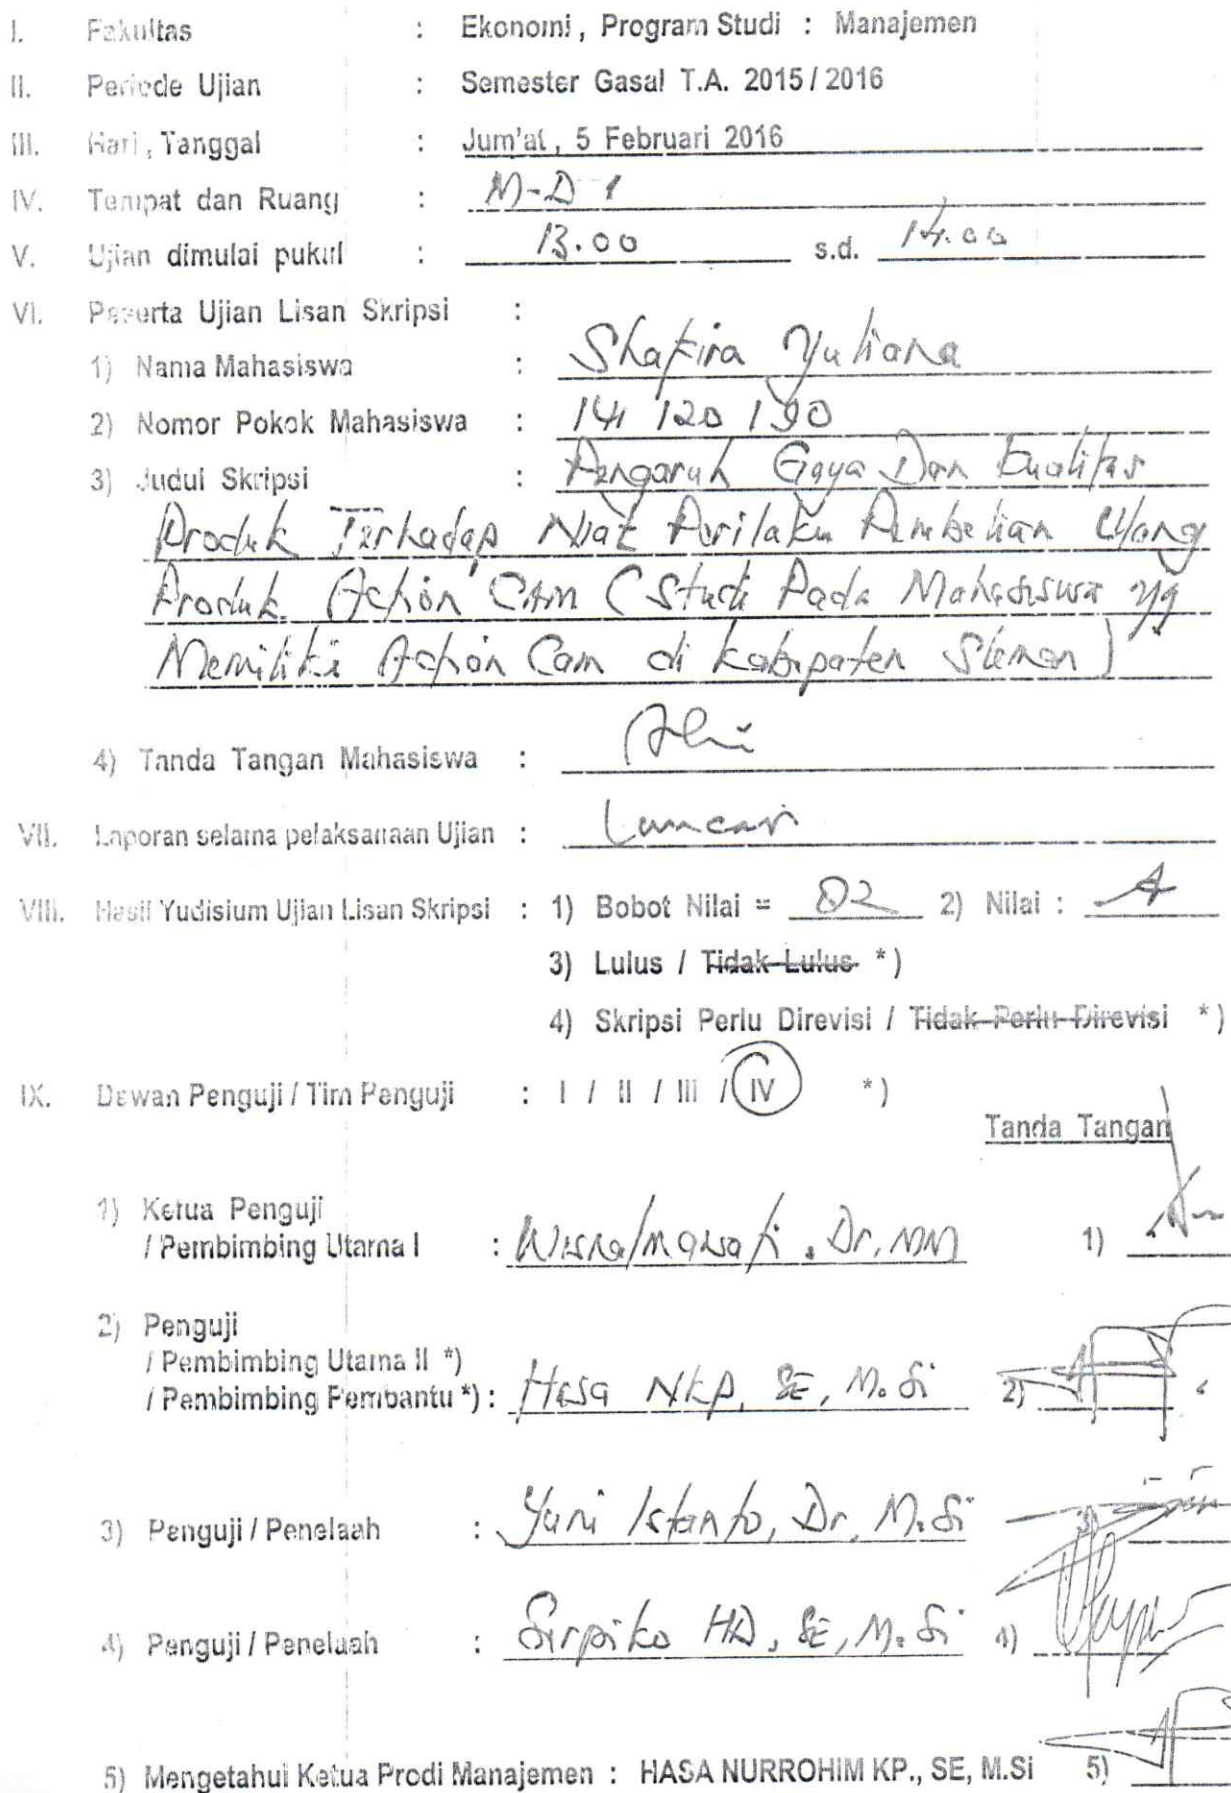 I. Fakultas : Ekonomi, Program Studi : Manajemen
II. Periode Ujian : Semester Gasal T.A. 2015 / 2016
III. Hari, Tanggal : Jum'at, 5 Februari 2016
IV. Tempat dan Ruang : M-D 1
V. Ujian dimulai pukul : 13.00 s.d. 14.00
VI. Peserta Ujian Lisan Skripsi :
1) Nama Mahasiswa : Shafira Yuliana
2) Nomor Pokok Mahasiswa : 141 120 190
3) Judul Skripsi : Pengaruh Gaya Dan Kualitas
Produk Terhadap Niat Perilaku Pembelian Ulang
Produk Action Cam (Studi Pada Mahasiswa yg
Memiliki Action Cam di Kabupaten Sleman)
4) Tanda Tangan Mahasiswa :
VII. Laporan selama pelaksanaan Ujian : Lancar
VIII. Hasil Yudisium Ujian Lisan Skripsi : 1) Bobot Nilai = 82 2) Nilai : A
3) Lulus / Tidak Lulus *)
4) Skripsi Perlu Direvisi / Tidak Perlu Direvisi *)
IX. Dewan Penguji / Tim Penguji : I / II / III / IV *)
Tanda Tangan
1) Ketua Penguji
/ Pembimbing Utama I : Wisnalmawati, Dr, MM 1)
2) Penguji
/ Pembimbing Utama II *)
/ Pembimbing Pembantu *) : Hasa NKP, SE, M.Si 2)
3) Penguji / Penelaah : Yuni Istanto, Dr, M.Si 3)
4) Penguji / Penelaah : HD, SE, M.Si 4)
5) Mengetahui Ketua Prodi Manajemen : HASA NURROHIM KP., SE, M.Si 5)